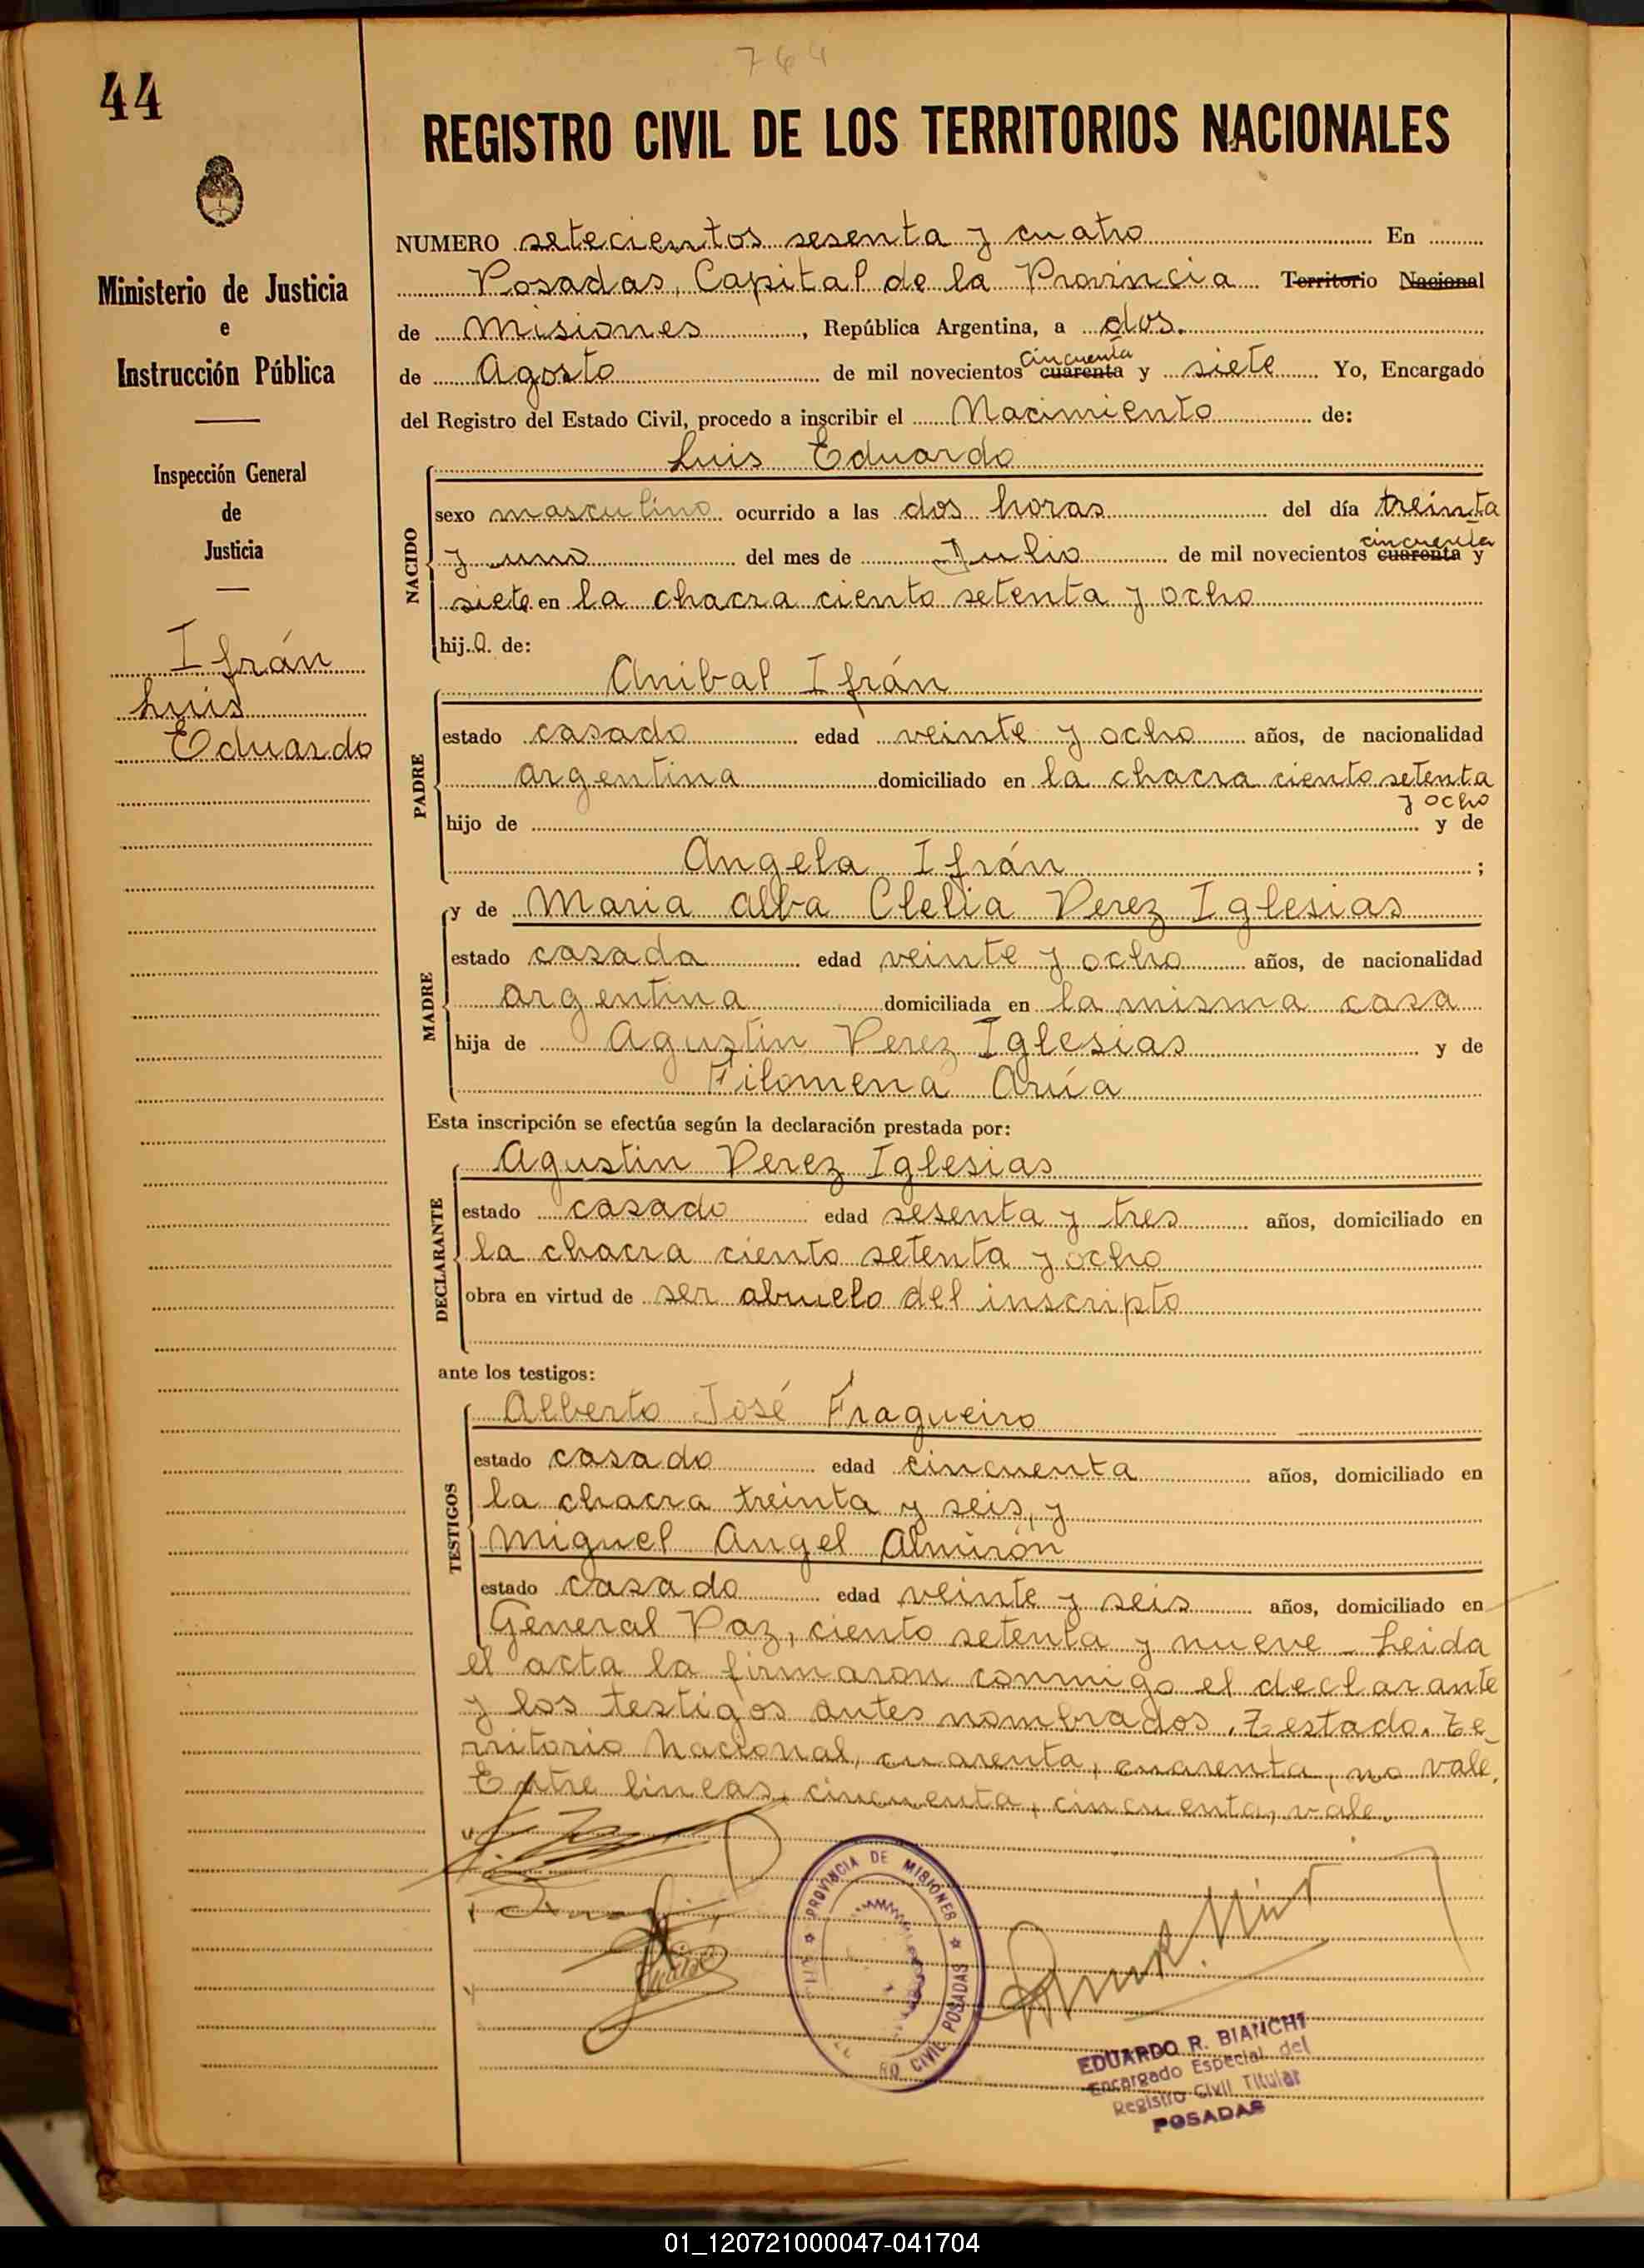 764
44
REGISTRO CIVIL DE LOS TERRITORIOS NACIONALES
Ministerio de Justicia
e
Instrucción Pública
Inspección General
de
Justicia
Ifrán
Luis
Eduardo
NUMERO setecientos sesenta y cuatro En
Posadas, Capital de la Provincia Territorio Nacional
de Misiones, República Argentina, a dos.
de Agosto de mil novecientos cincuenta cuarenta y siete Yo, Encargado
del Registro del Estado Civil, procedo a inscribir el Nacimiento de:
Luis Eduardo
NACIDO
sexo masculino ocurrido a las dos horas del día treinta
y uno del mes de Julio de mil novecientos cincuenta cuarenta y
siete en la chacra ciento setenta y ocho
hijo de:
Anibal Ifrán
PADRE
estado casado edad veinte y ocho años, de nacionalidad
argentina domiciliado en la chacra ciento setenta
y ocho
hijo de y de
Angela Ifrán ;
y de Maria Alba Clelia Perez Iglesias
MADRE
estado casada edad veinte y ocho años, de nacionalidad
argentina domiciliada en la misma casa
hija de Agustin Perez Iglesias y de
Filomena Arúa
Esta inscripción se efectúa según la declaración prestada por:
Agustin Perez Iglesias
DECLARANTE
estado casado edad sesenta y tres años, domiciliado en
la chacra ciento setenta y ocho
obra en virtud de ser abuelo del inscripto
ante los testigos:
Alberto José Fragueiro
TESTIGOS
estado casado edad cincuenta años, domiciliado en
la chacra treinta y seis, y
Miguel Angel Almirón
estado casado edad veinte y seis años, domiciliado en
General Paz, ciento setenta y nueve - Leida
el acta la firmaron conmigo el declarante
y los testigos antes nombrados. Testado. Te
rritorio Nacional, cuarenta, cuarenta, no vale.
Entre lineas, cincuenta, cincuenta, vale.
PROVINCIA DE MISIONES
CIVIL POSADAS
EDUARDO R. BIANCHI
Encargado Especial del
Registro Civil Titular
POSADAS
01_120721000047-041704